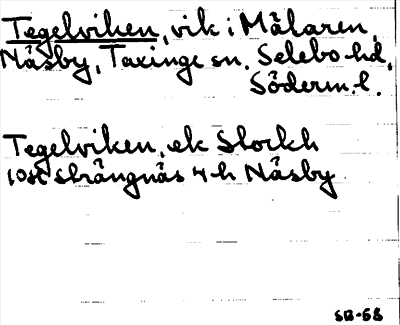 Tegelviken, vik i Mälaren,
Näsby, Taxinge sn. Selebo hd,
Söderm. l.
Tegelviken, ek Storkh
10SV Strängnäs 4 h Näsby
SB-68